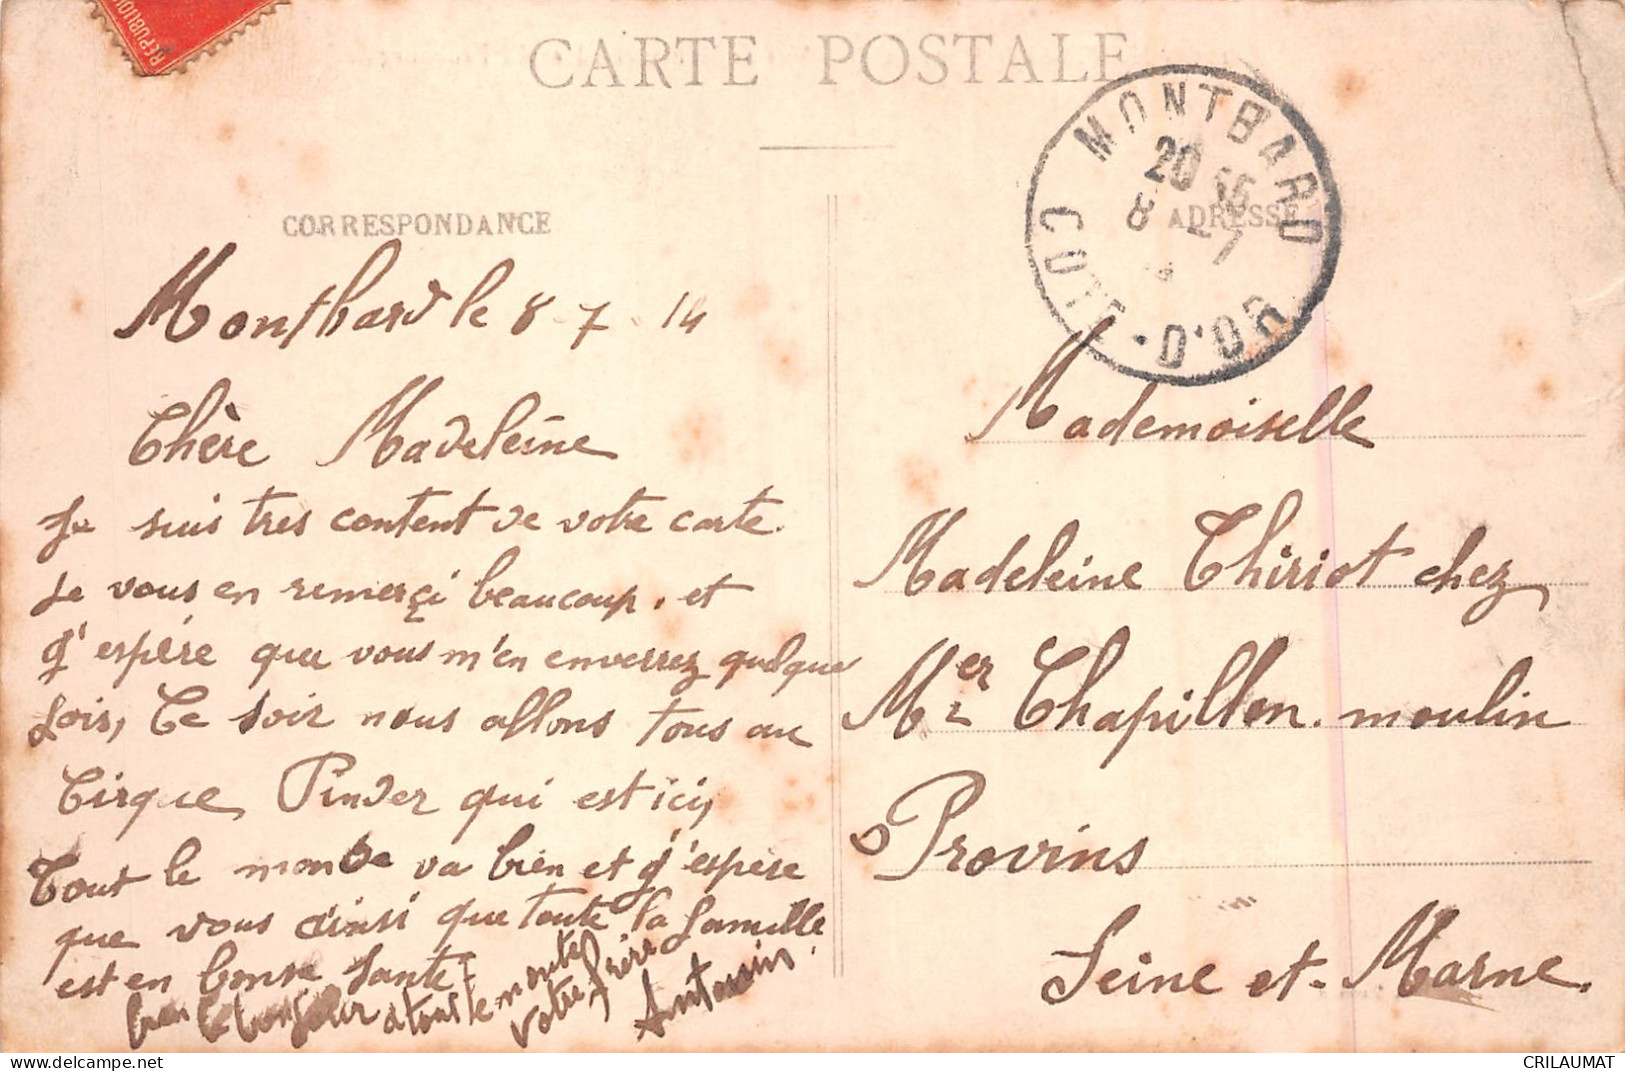 RÉPUBLIQUE
CARTE POSTALE
MONTBARD
20
8 -7
COTE-D'OR
CORRESPONDANCE
ADRESSE
Montbard le 8-7-14
Chère Madeleine
Je suis tres content de votre carte.
Je vous en remerçi beaucoup. et
j'espére que vous m'en enverrez quelque
fois, Ce soir nous allons tous au
Cirque Pinder qui est ici,
Tout le monde va bien et j'espere
que vous ainsi que toute la famille
est en bonne santé
bien le bonjour a tout le monde
votre frère
Antonin.
Mademoiselle
Madeleine Thiriot chez
Mer Chapillon. moulin
Provins
Seine et-Marne.
CRILAUMAT